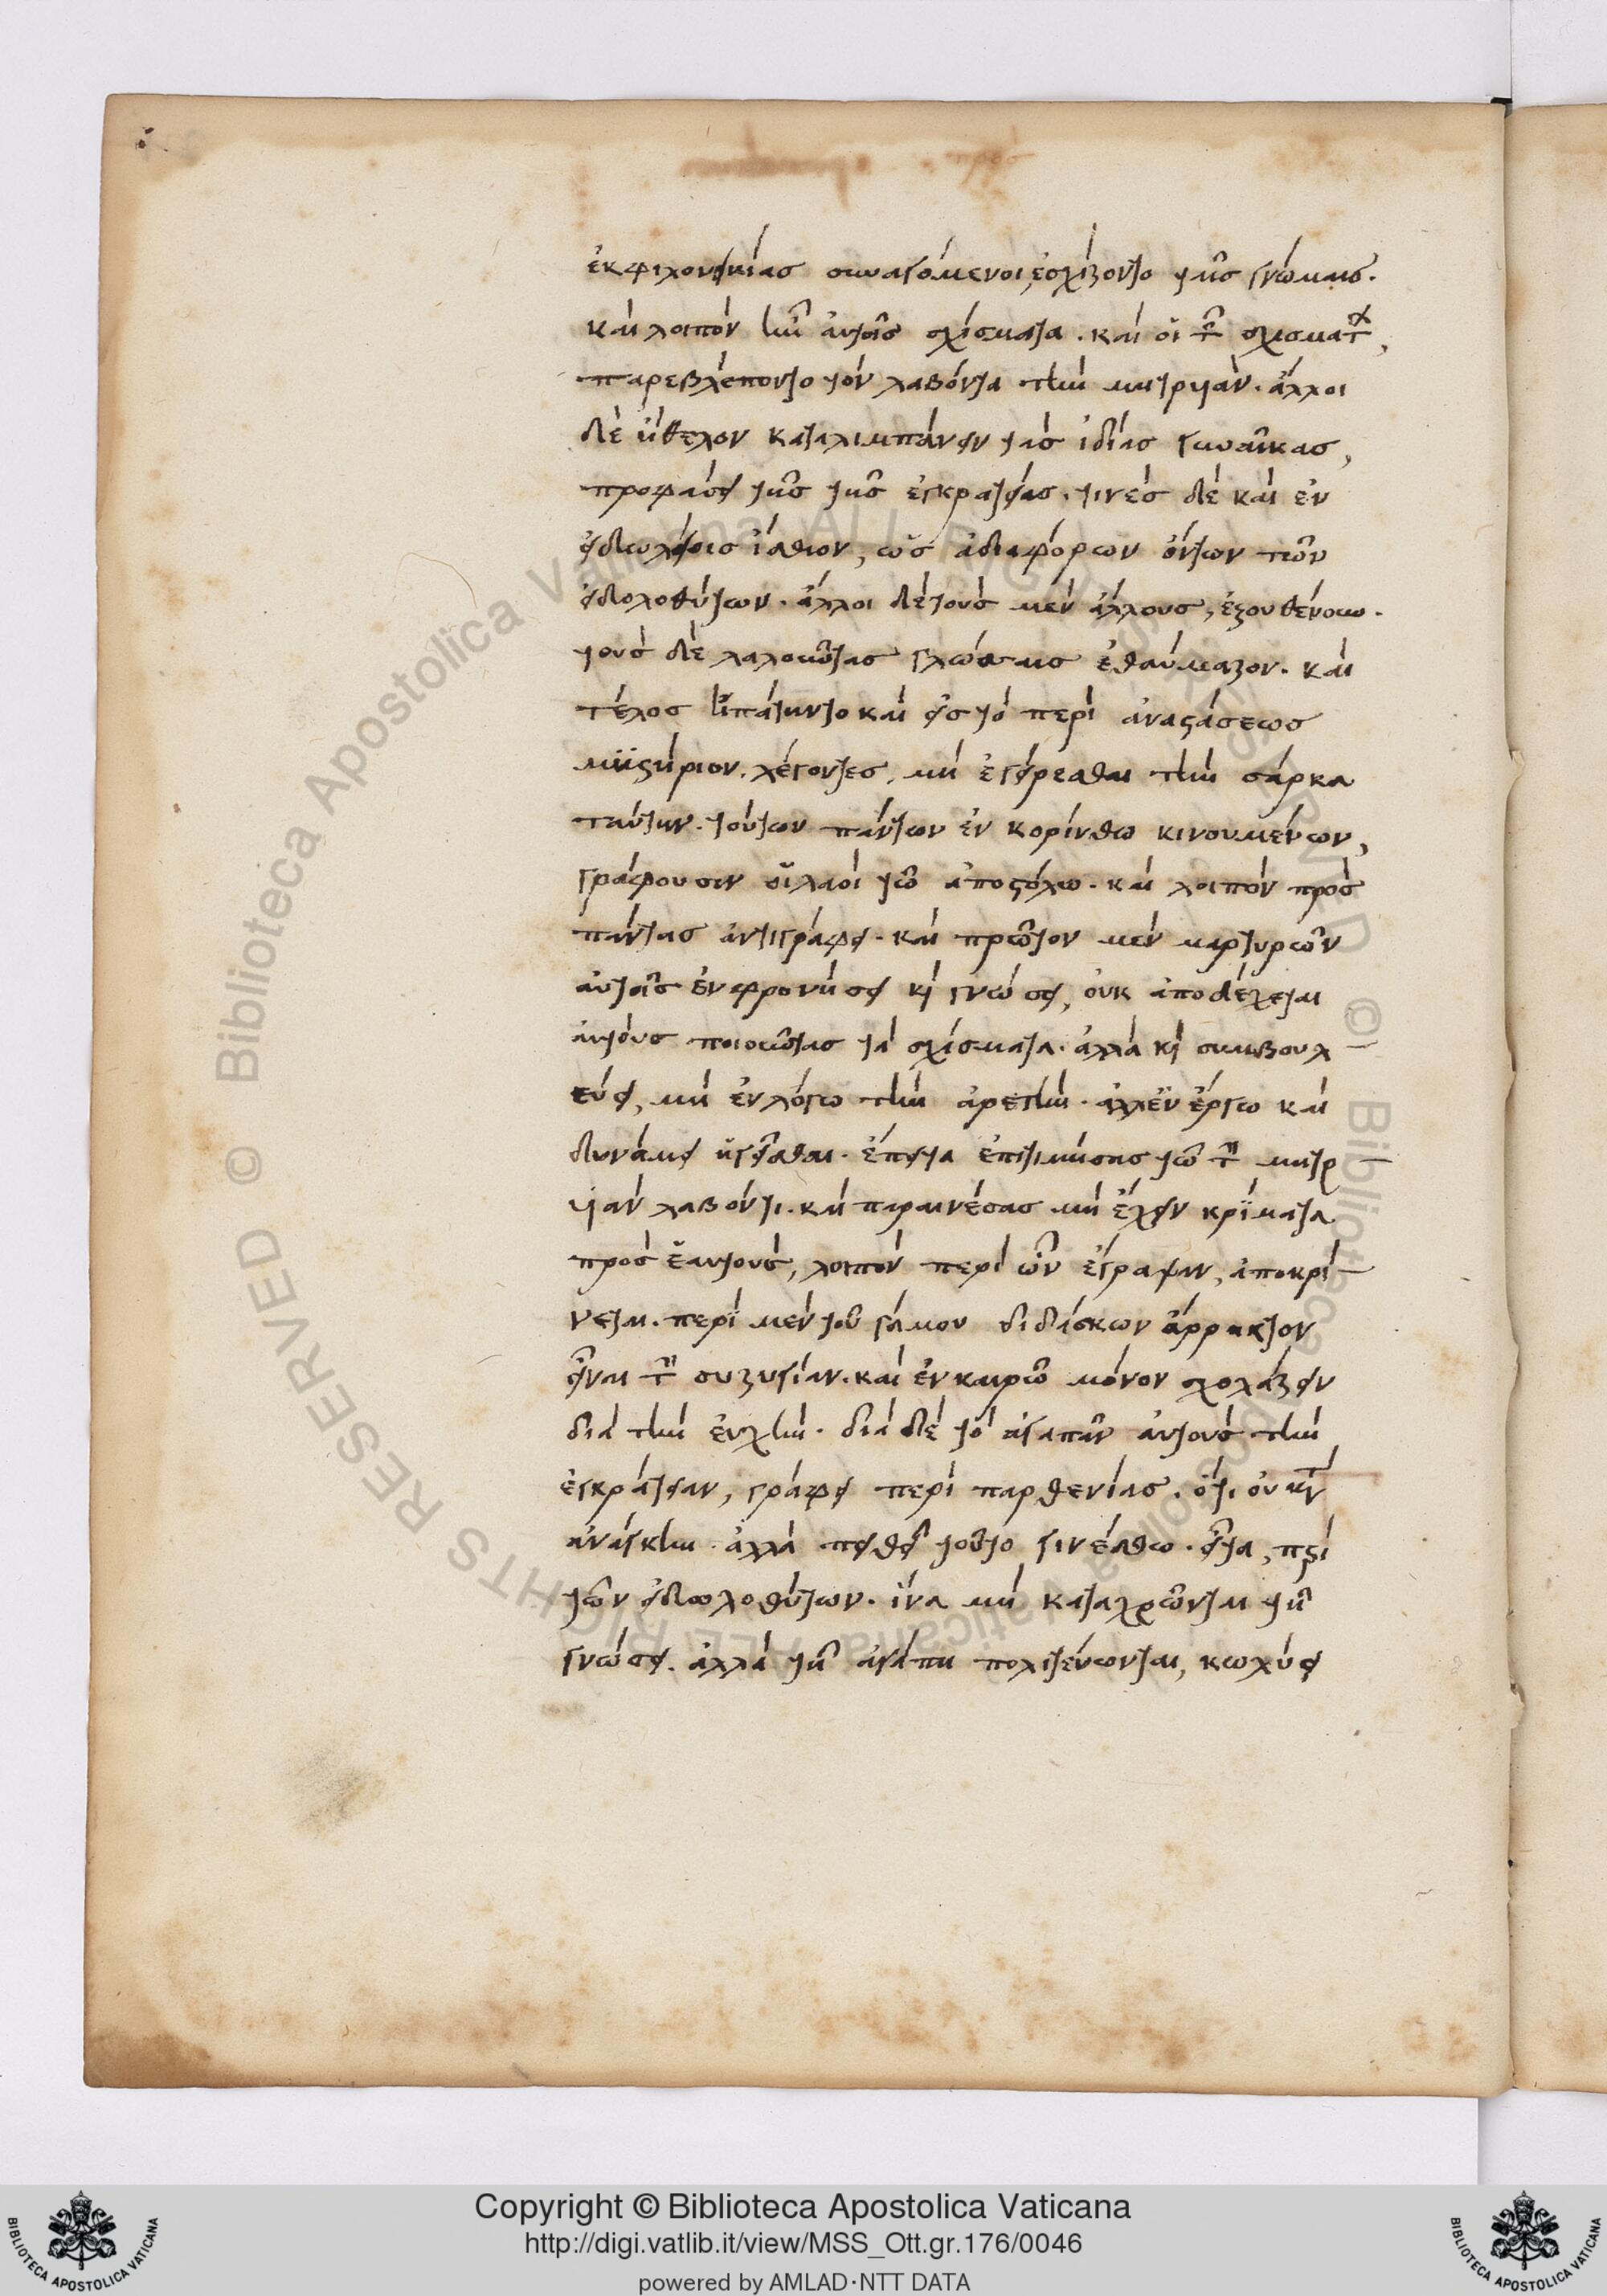 ἐκ φιλονεικίας συναγόμενοι, ἐσχίζοντο ταῖς γνώμαις.
καὶ λοιπὸν ἦν αὐτοῖς σχίσματα. καὶ οἱ τῶν σχισμάτων,
παρεβλέποντο τὸν λαβόντα τὴν μητρυιάν. ἄλλοι
δὲ ἤθελον καταλιμπάνειν τὰς ἰδίας γυναῖκας,
προφάσει τῆς τῆς ἐγκρατείας. τινὲς δὲ καὶ ἐν
εἰδωλείοις ἤσθιον, ὡς ἀδιαφόρων ὄντων τῶν
εἰδολοθύτων. ἄλλοι δὲ τοὺς μὲν ἄλλους, ἐξουθένουν.
τοὺς δὲ λαλοῦντας γλώσσαις ἐθαύμαζον. καὶ
τέλος ἠπάτηντο καὶ εἰς τὸ περὶ ἀναστάσεως
μυστήριον. λέγοντες, μὴ ἐγείρεσθαι τὴν σάρκα
ταύτην. τούτων πάντων ἐν κορίνθω κινουμένων,
γράφουσιν οἱ λαοὶ τῶ ἀποστόλω. καὶ λοιπὸν πρὸς
πάντας ἀντιγράφει. καὶ πρῶτον μὲν μαρτυρῶν
αὐτοῖς ἐν φρονήσει καὶ γνώσει, οὐκ ἀποδέχεται
αὐτοὺς ποιοῦντας τὰ σχίσματα. ἀλλὰ καὶ συμβουλ
εύει, μὴ ἐν λόγω τὴν ἀρετὴν. ἀλλ' ἐν ἔργω καὶ
δυνάμει ἡγεῖσθαι. ἔπειτα ἐπιτιμήσης τῶ τὴν μητρ
υιὰν λαβόντι. καὶ παραινέσας μὴ ἔχειν κρίματα
πρὸς ἑαυτοὺς, λοιπὸν περὶ ὧν ἔγραψαν, ἀποκρί
νεται. περὶ μὲν τοῦ γάμου διδάσκων ἄρρηκτον
εἶναι τὴν συζυγίαν. καὶ ἐν καιρῶ μόνον σχολάζειν
διὰ τὴν εὐχὴν. διὰ δὲ τὸ ἀγαπᾶν αὐτοὺς τὴν
ἐγκράτειαν, γράφει περὶ παρθενίας. ὅτι οὐ κατ'
ἀνάγκην. ἀλλὰ πειθοῖ τοῦτο γινέσθω. εἶτα, περὶ
τῶν εἰδωλοθύτων. ἵνα μὴ καταχρῶνται τῆ
γνώσει. ἀλλὰ τῆ ἀγάπη πολιτεύωνται, κωλύει
Copyright © Biblioteca Apostolica Vaticana
http://digi.vatlib.it/view/MSS_Ott.gr.176/0046
powered by AMLAD·NTT DATA